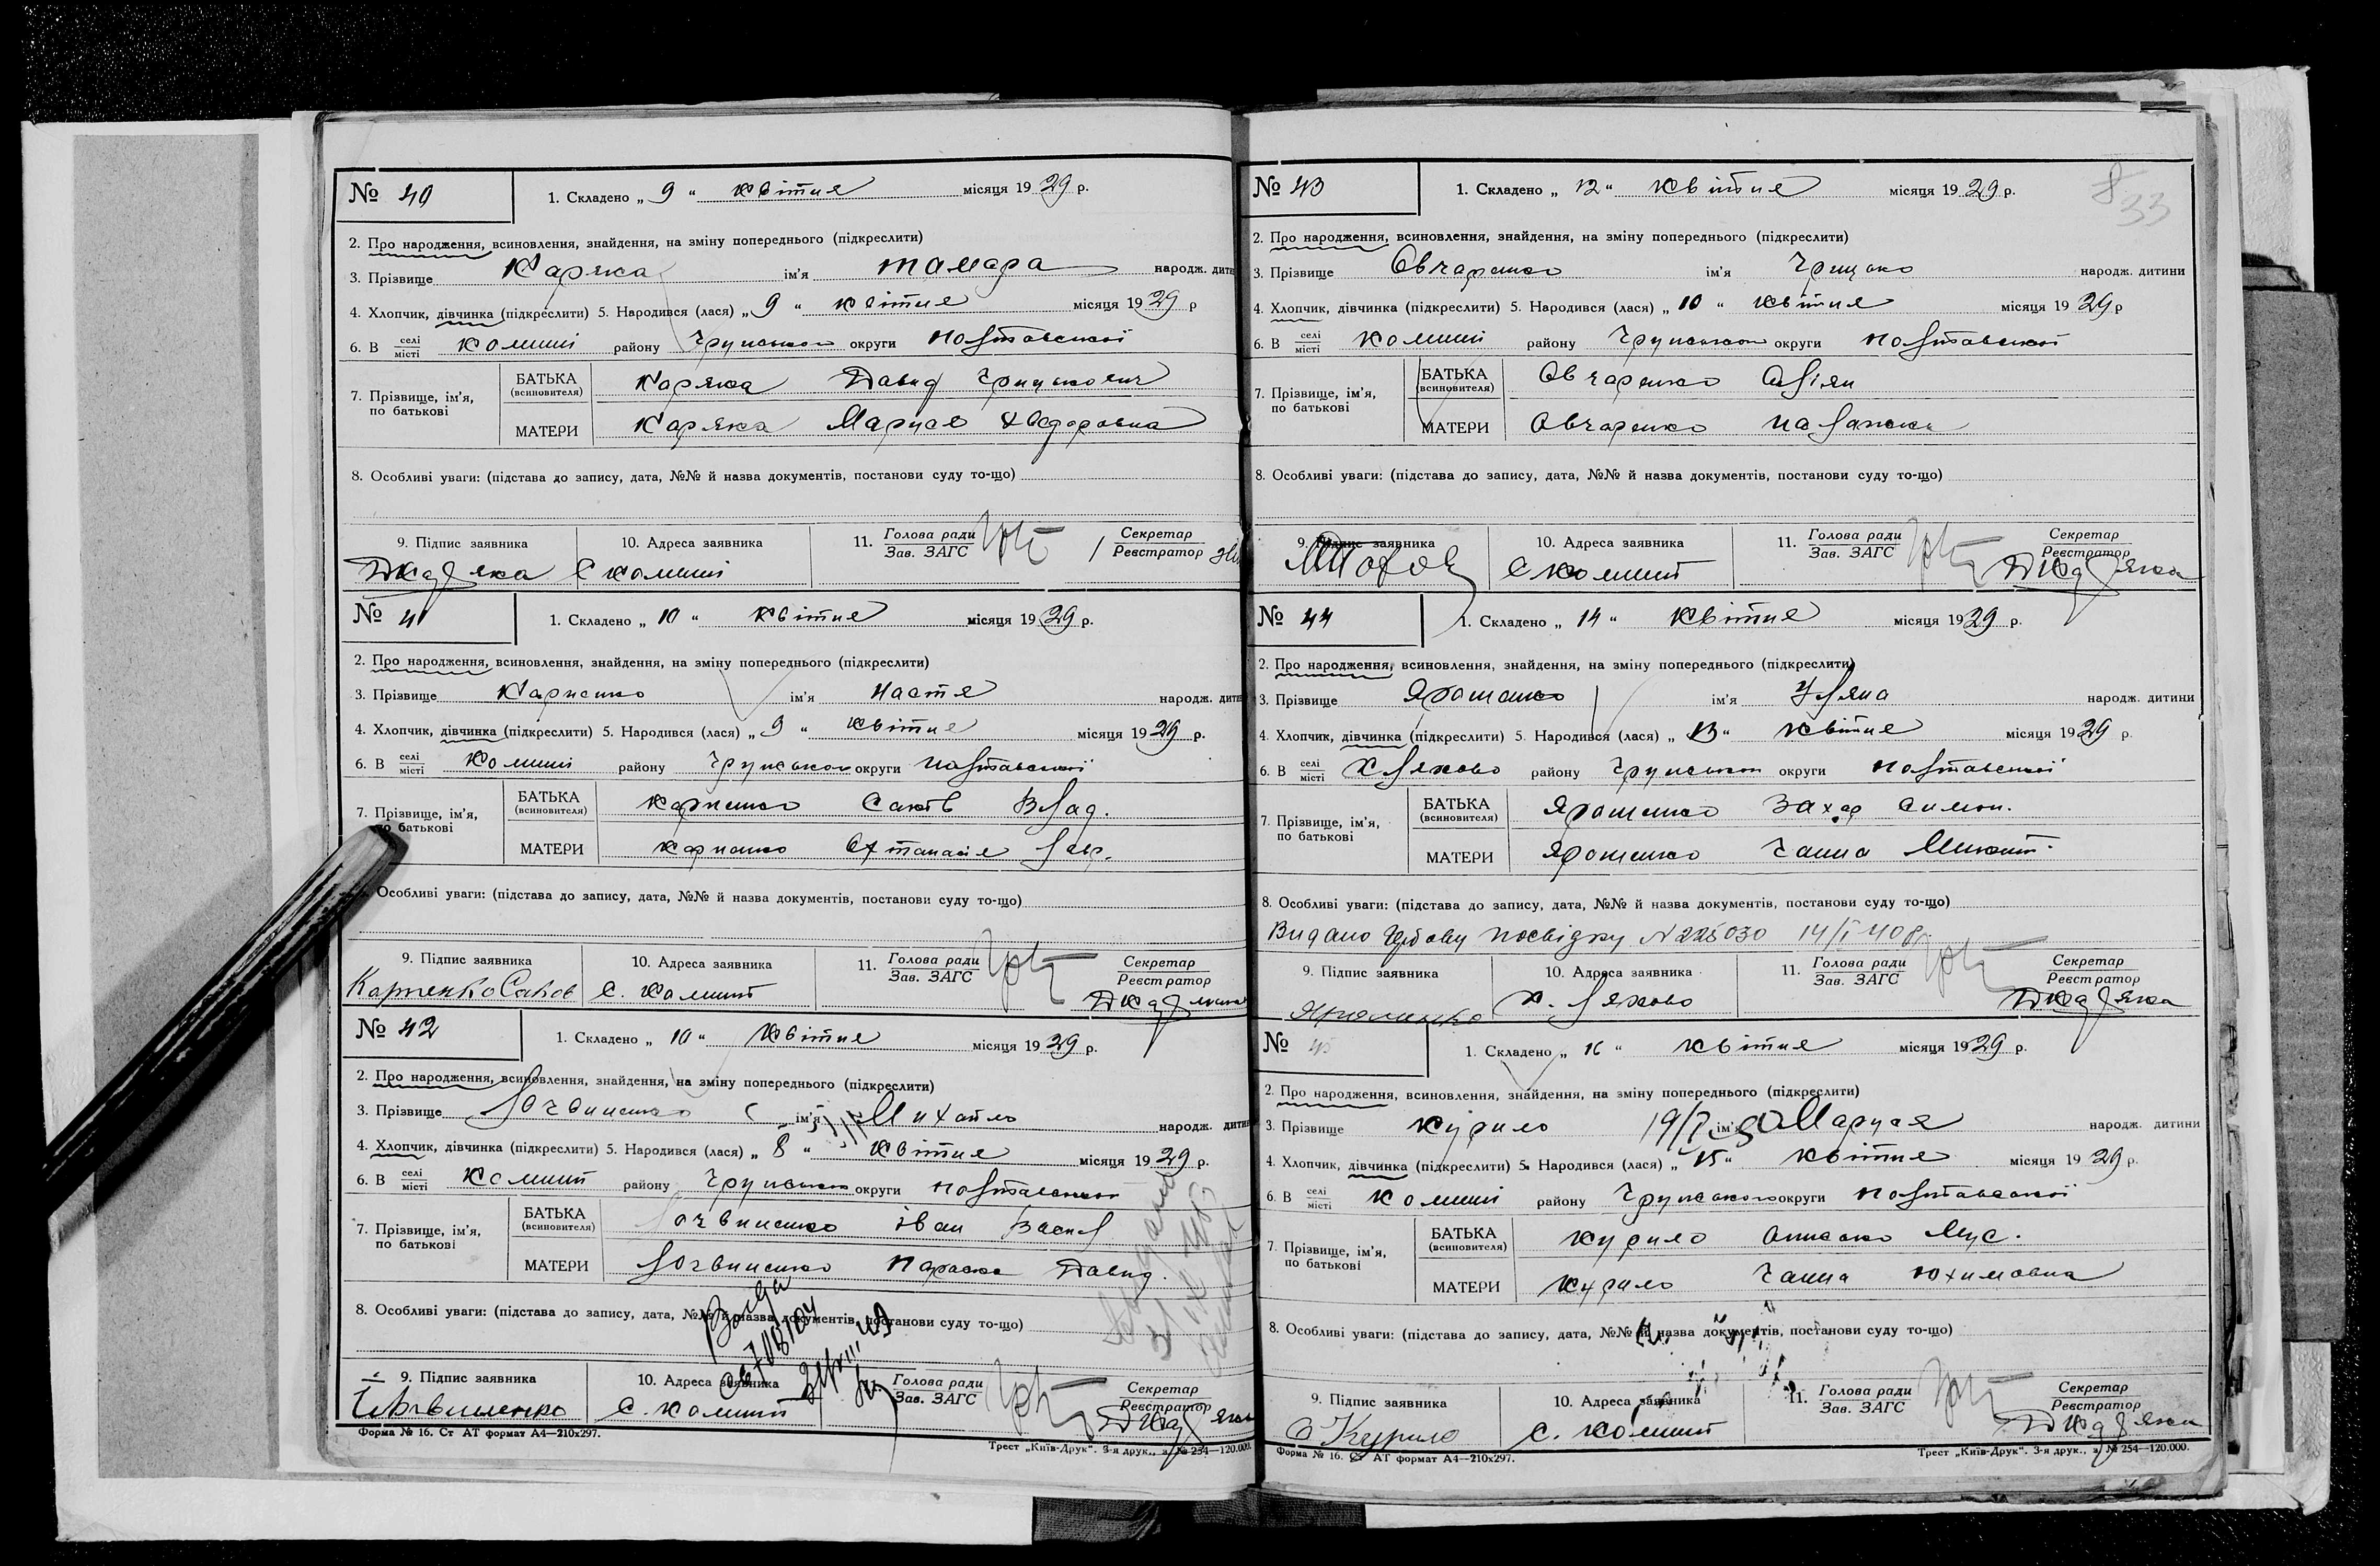 № 40
1. Складено „ 9 “ квітня місяця 1929 р.
2. Про народження, всиновлення, знайдення, на зміну попереднього (підкреслити)
3. Прізвище Каряка ім'я Тамара народж. дити
4. Хлопчик, дівчинка (підкреслити) 5. Народився (лася) „ 9 “ квітня місяця 1929 р
6. В селі/місті Комиші району Грунського округи Полтавської
7. Прізвище, ім'я, по батькові
БАТЬКА (всиновителя) Каряка Давид Грицькович
МАТЕРИ Каряка Маруся Хведоровна
8. Особливі уваги: (підстава до запису, дата, №№ й назва документів, постанови суду то-що)
9. Підпис заявника 10. Адреса заявника 11. Голова ради/Зав. ЗАГС Секретар/Реєстратор
ДКаряка С Комиші
№ 41
1. Складено „ 10 “ квітня місяця 1929 р.
2. Про народження, всиновлення, знайдення, на зміну попереднього (підкреслити)
3. Прізвище Карпенко ім'я Настя народж. дити
4. Хлопчик, дівчинка (підкреслити) 5. Народився (лася) „ 9 “ квітня місяця 1929 р.
6. В селі/місті Комиші району Грунського округи Полтавської
7. Прізвище, ім'я, по батькові
БАТЬКА (всиновителя) Карпенко Влад.
МАТЕРИ Карпенко
Особливі уваги: (підстава до запису, дата, №№ й назва документів, постанови суду то-що)
9. Підпис заявника 10. Адреса заявника 11. Голова ради/Зав. ЗАГС Секретар/Реєстратор
Карпенко С. Комиші
№ 42
1. Складено „ 10 “ квітня місяця 1929 р.
2. Про народження, всиновлення, знайдення, на зміну попереднього (підкреслити)
3. Прізвище Логвиненко ім'я Михайло народж. дити
4. Хлопчик, дівчинка (підкреслити) 5. Народився (лася) „ 8 “ квітня місяця 1929 р.
6. В селі/місті Комиші району Грунського округи Полтавської
7. Прізвище, ім'я, по батькові
БАТЬКА (всиновителя) Логвиненко Іван Васил
МАТЕРИ Логвиненко Параска Давид.
8. Особливі уваги: (підстава до запису, дата, №№ й назва документів, постанови суду то-що)
9. Підпис заявника 10. Адреса заявника 11. Голова ради/Зав. ЗАГС Секретар/Реєстратор
С. Комиші
Форма № 16. Ст АТ формат А4—210х297. Трест „Київ-Друк“. 3-я друк., з. № 254—120.000.
33
№ 43
1. Складено „ 12 “ квітня місяця 1929 р.
2. Про народження, всиновлення, знайдення, на зміну попереднього (підкреслити)
3. Прізвище Овчаренко ім'я Грицько народж. дитини
4. Хлопчик, дівчинка (підкреслити) 5. Народився (лася) „ 10 “ квітня місяця 1929 р
6. В селі/місті Комиші району Грунського округи Полтавської
7. Прізвище, ім'я, по батькові
БАТЬКА (всиновителя) Овчаренко
МАТЕРИ Овчаренко Палажка
8. Особливі уваги: (підстава до запису, дата, №№ й назва документів, постанови суду то-що)
9. Підпис заявника 10. Адреса заявника 11. Голова ради/Зав. ЗАГС Секретар/Реєстратор
С Комиші ДКаряка
№ 44
1. Складено „ 14 “ квітня місяця 1929 р.
2. Про народження, всиновлення, знайдення, на зміну попереднього (підкреслити)
3. Прізвище Ярошенко ім'я Уляна народж. дитини
4. Хлопчик, дівчинка (підкреслити) 5. Народився (лася) „ 13 “ квітня місяця 1929 р.
6. В селі/місті Х Ляхово району Грунського округи Полтавської
7. Прізвище, ім'я, по батькові
БАТЬКА (всиновителя) Ярошенко Захар Симон.
МАТЕРИ Ярошенко Ганна Микит.
8. Особливі уваги: (підстава до запису, дата, №№ й назва документів, постанови суду то-що)
Видано посвідку N 225030 14/I 40 р.
9. Підпис заявника 10. Адреса заявника 11. Голова ради/Зав. ЗАГС Секретар/Реєстратор
х. Ляхово ДКаряка
№ 45
1. Складено „ 16 “ квітня місяця 1929 р.
2. Про народження, всиновлення, знайдення, на зміну попереднього (підкреслити)
3. Прізвище Курило ім'я Маруся народж. дитини
4. Хлопчик, дівчинка (підкреслити) 5. Народився (лася) „ 15 “ квітня місяця 1929 р.
6. В селі/місті Комиші району Грунського округи Полтавської
7. Прізвище, ім'я, по батькові
БАТЬКА (всиновителя) Курило Мус.
МАТЕРИ Курило Ганна Юхимовна
8. Особливі уваги: (підстава до запису, дата, №№ й назва документів, постанови суду то-що)
9. Підпис заявника 10. Адреса заявника 11. Голова ради/Зав. ЗАГС Секретар/Реєстратор
О Курило С. Комиші ДКаряка
Форма № 16. Ст АТ формат А4—210х297. Трест „Київ-Друк“. 3-я друк., з. № 254—120.000.